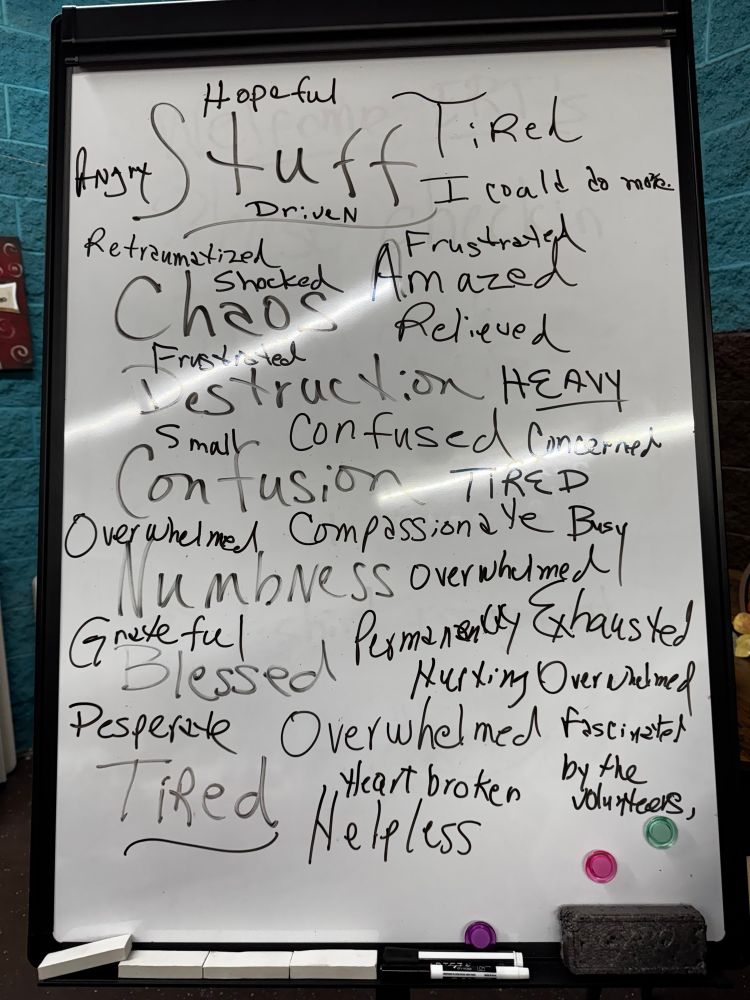 Hopeful
Tired
Angry Stuff
I could do more.
Driven
Retraumatized Frustrated
Shocked Amazed
Chaos Relieved
Frustrated
Destruction HEAVY
Small Confused Concerned
Confusion TIRED
Overwhelmed Compassionate Busy
Numbness Overwhelmed
Grateful Permanently Exhausted
Blessed Hurting Overwhelmed
Desperate Overwhelmed Fascinated
by the
volunteers,
Tired Heart broken
Helpless